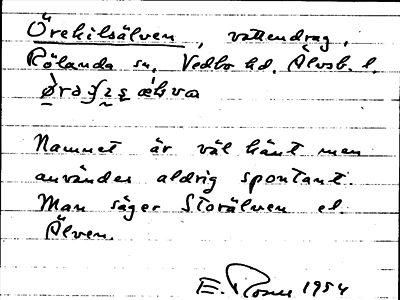 Örekilsälven, vattendrag,
Rölanda sn, Vedbo hd, Älvsb. l.
Namnet är väl känt men
användes aldrig spontant.
Man säger Storälven el.
Älven.
E. Rosen 1954